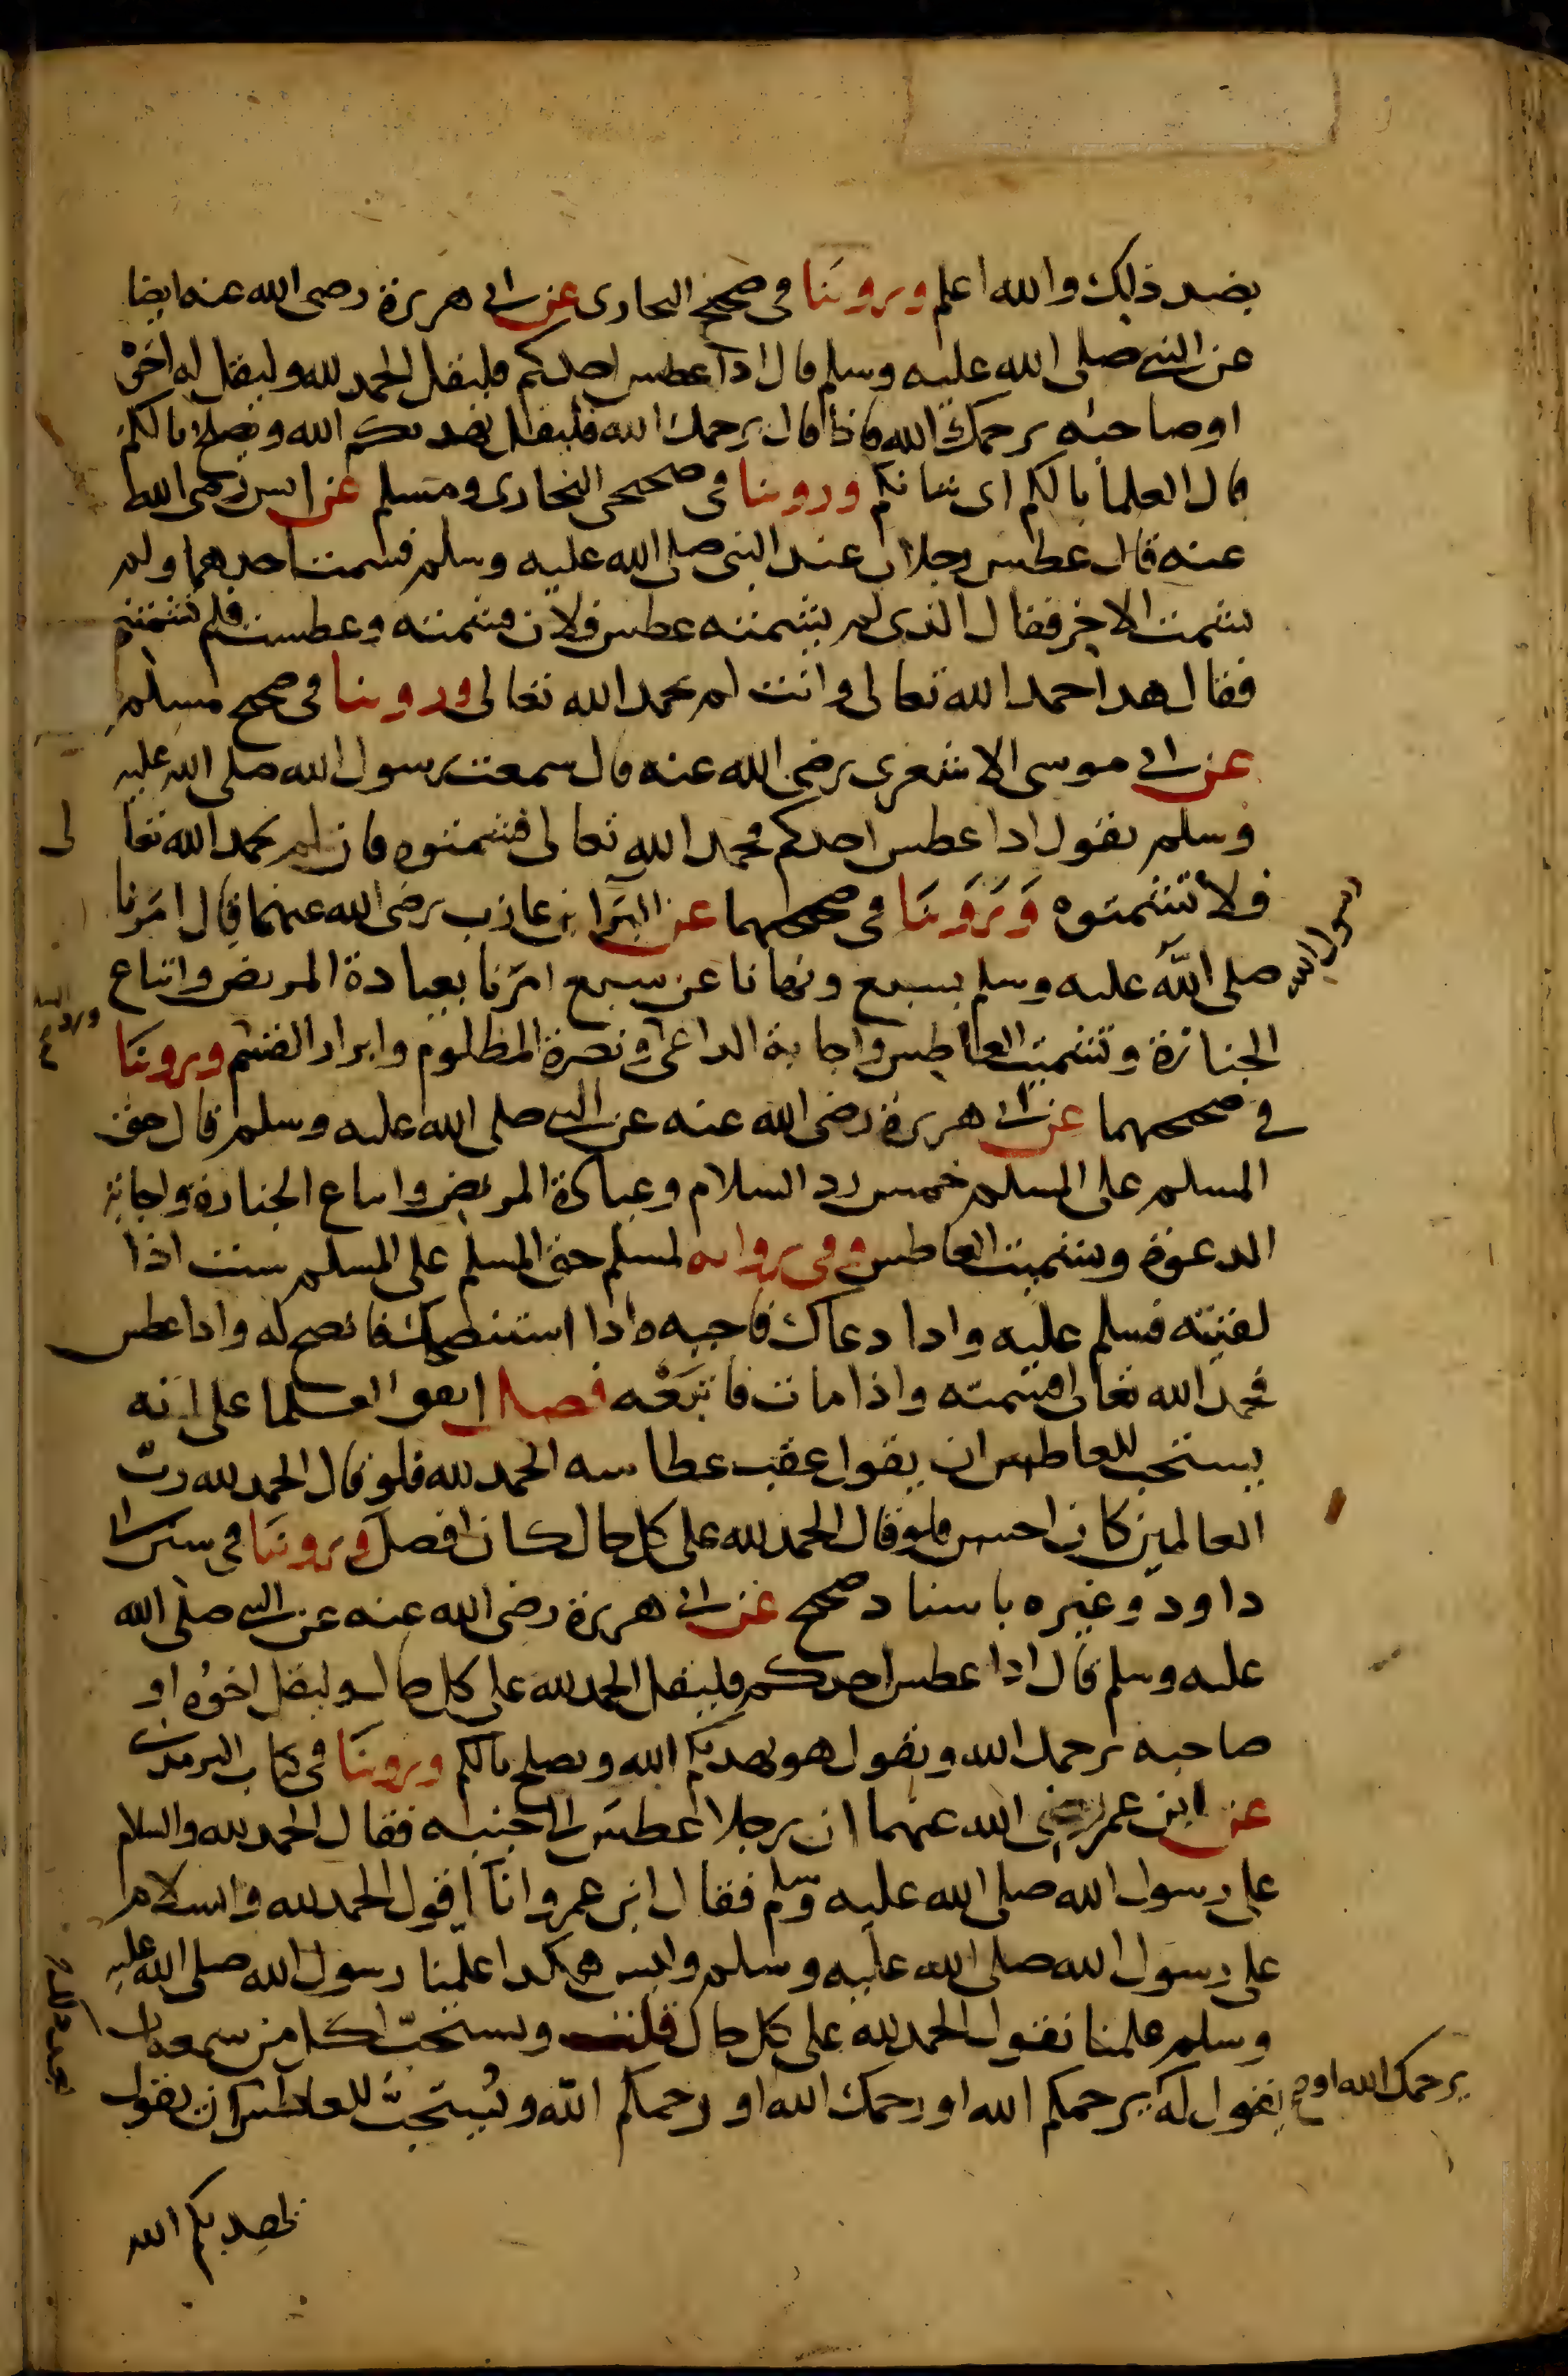 بضد ذلك والله اعلم وروينا في صحيح البخاري عن ابي هريرة رضي الله عنه ايضا
عن النبي صلى الله عليه وسلم قال اذا عطس احدكم فليقل الحمد لله وليقل له اخوه
او صاحبه يرحمك الله فاذا قال يرحمك الله فليقل يهديكم الله ويصلح بالكم
قال العلما بالكم اى شانكم وروينا في صحيحي البخاري ومسلم عن انس رضي الله
عنه قال عطس رجلان عند النبي صلى الله عليه وسلم فشمت احدهما ولم
يشمت الاخر فقال الذي لم يشمته عطس فلان فشمته وعطست فلم تشمتني
فقال هذا حمد الله تعالى وانت لم تحمد الله تعالى وروينا في صحيح مسلم
عن ابي موسى الاشعري رضي الله عنه قال سمعت رسول الله صلى الله عليه
وسلم يقول اذا عطس احدكم فحمد الله تعالى فشمتوه فان لم يحمد الله تعا
لى
فلا تشمتوه وروينا في صحيحهما عن البرا بن عازب رضي الله عنهما قال امرنا
رسول الله
صلى الله عليه وسلم بسبع ونهانا عن سبع امرنا بعيادة المريض واتباع
الجنازة وتشميت العاطس واجابة الداعي ونصرة المظلوم وابرار القسم وروينا
ورد السلام
في صحيحهما عن ابي هريرة رضي الله عنه عن النبي صلى الله عليه وسلم قال حق
المسلم على المسلم خمس رد السلام وعيادة المريض واتباع الجنازة واجابة
الدعوة وتشميت العاطس وفي رواية لمسلم حق المسلم على المسلم ست اذا
لقيته فسلم عليه واذا دعاك فاجبه واذا استنصحك فانصح له واذا عطس
فحمد الله تعالى فشمته واذا مات فاتبعه فصل اتفق العلما على انه
يستحب للعاطس ان يقول عقب عطاسه الحمد لله فلو قال الحمد لله رب
العالمين كان احسن فلو قال الحمد لله على كل حال كان افضل وروينا في سنن ابي
داود وغيره باسناد صحيح عن ابي هريرة رضي الله عنه عن النبي صلى الله
عليه وسلم قال اذا عطس احدكم فليقل الحمد لله على كل حال وليقل اخوه او
صاحبه يرحمك الله ويقول هو يهديكم الله ويصلح بالكم وروينا في كتاب الترمذي
عن ابن عمر رضي الله عنهما ان رجلا عطس الى جنبه فقال الحمد لله والسلام
على رسول الله صلى الله عليه وسلم فقال ابن عمر وانا اقول الحمد لله والسلام
على رسول الله صلى الله عليه وسلم وليس هكذا علمنا رسول الله صلى الله عليه
وسلم علمنا نقول الحمد لله على كل حال قلت ويستحب لكل من سمعه ان
يقول له يرحمكم الله او رحمك الله او رحمكم الله ويستحب للعاطس ان يقول
يرحمك الله او صح
بعد ذلك
يهديكم الله